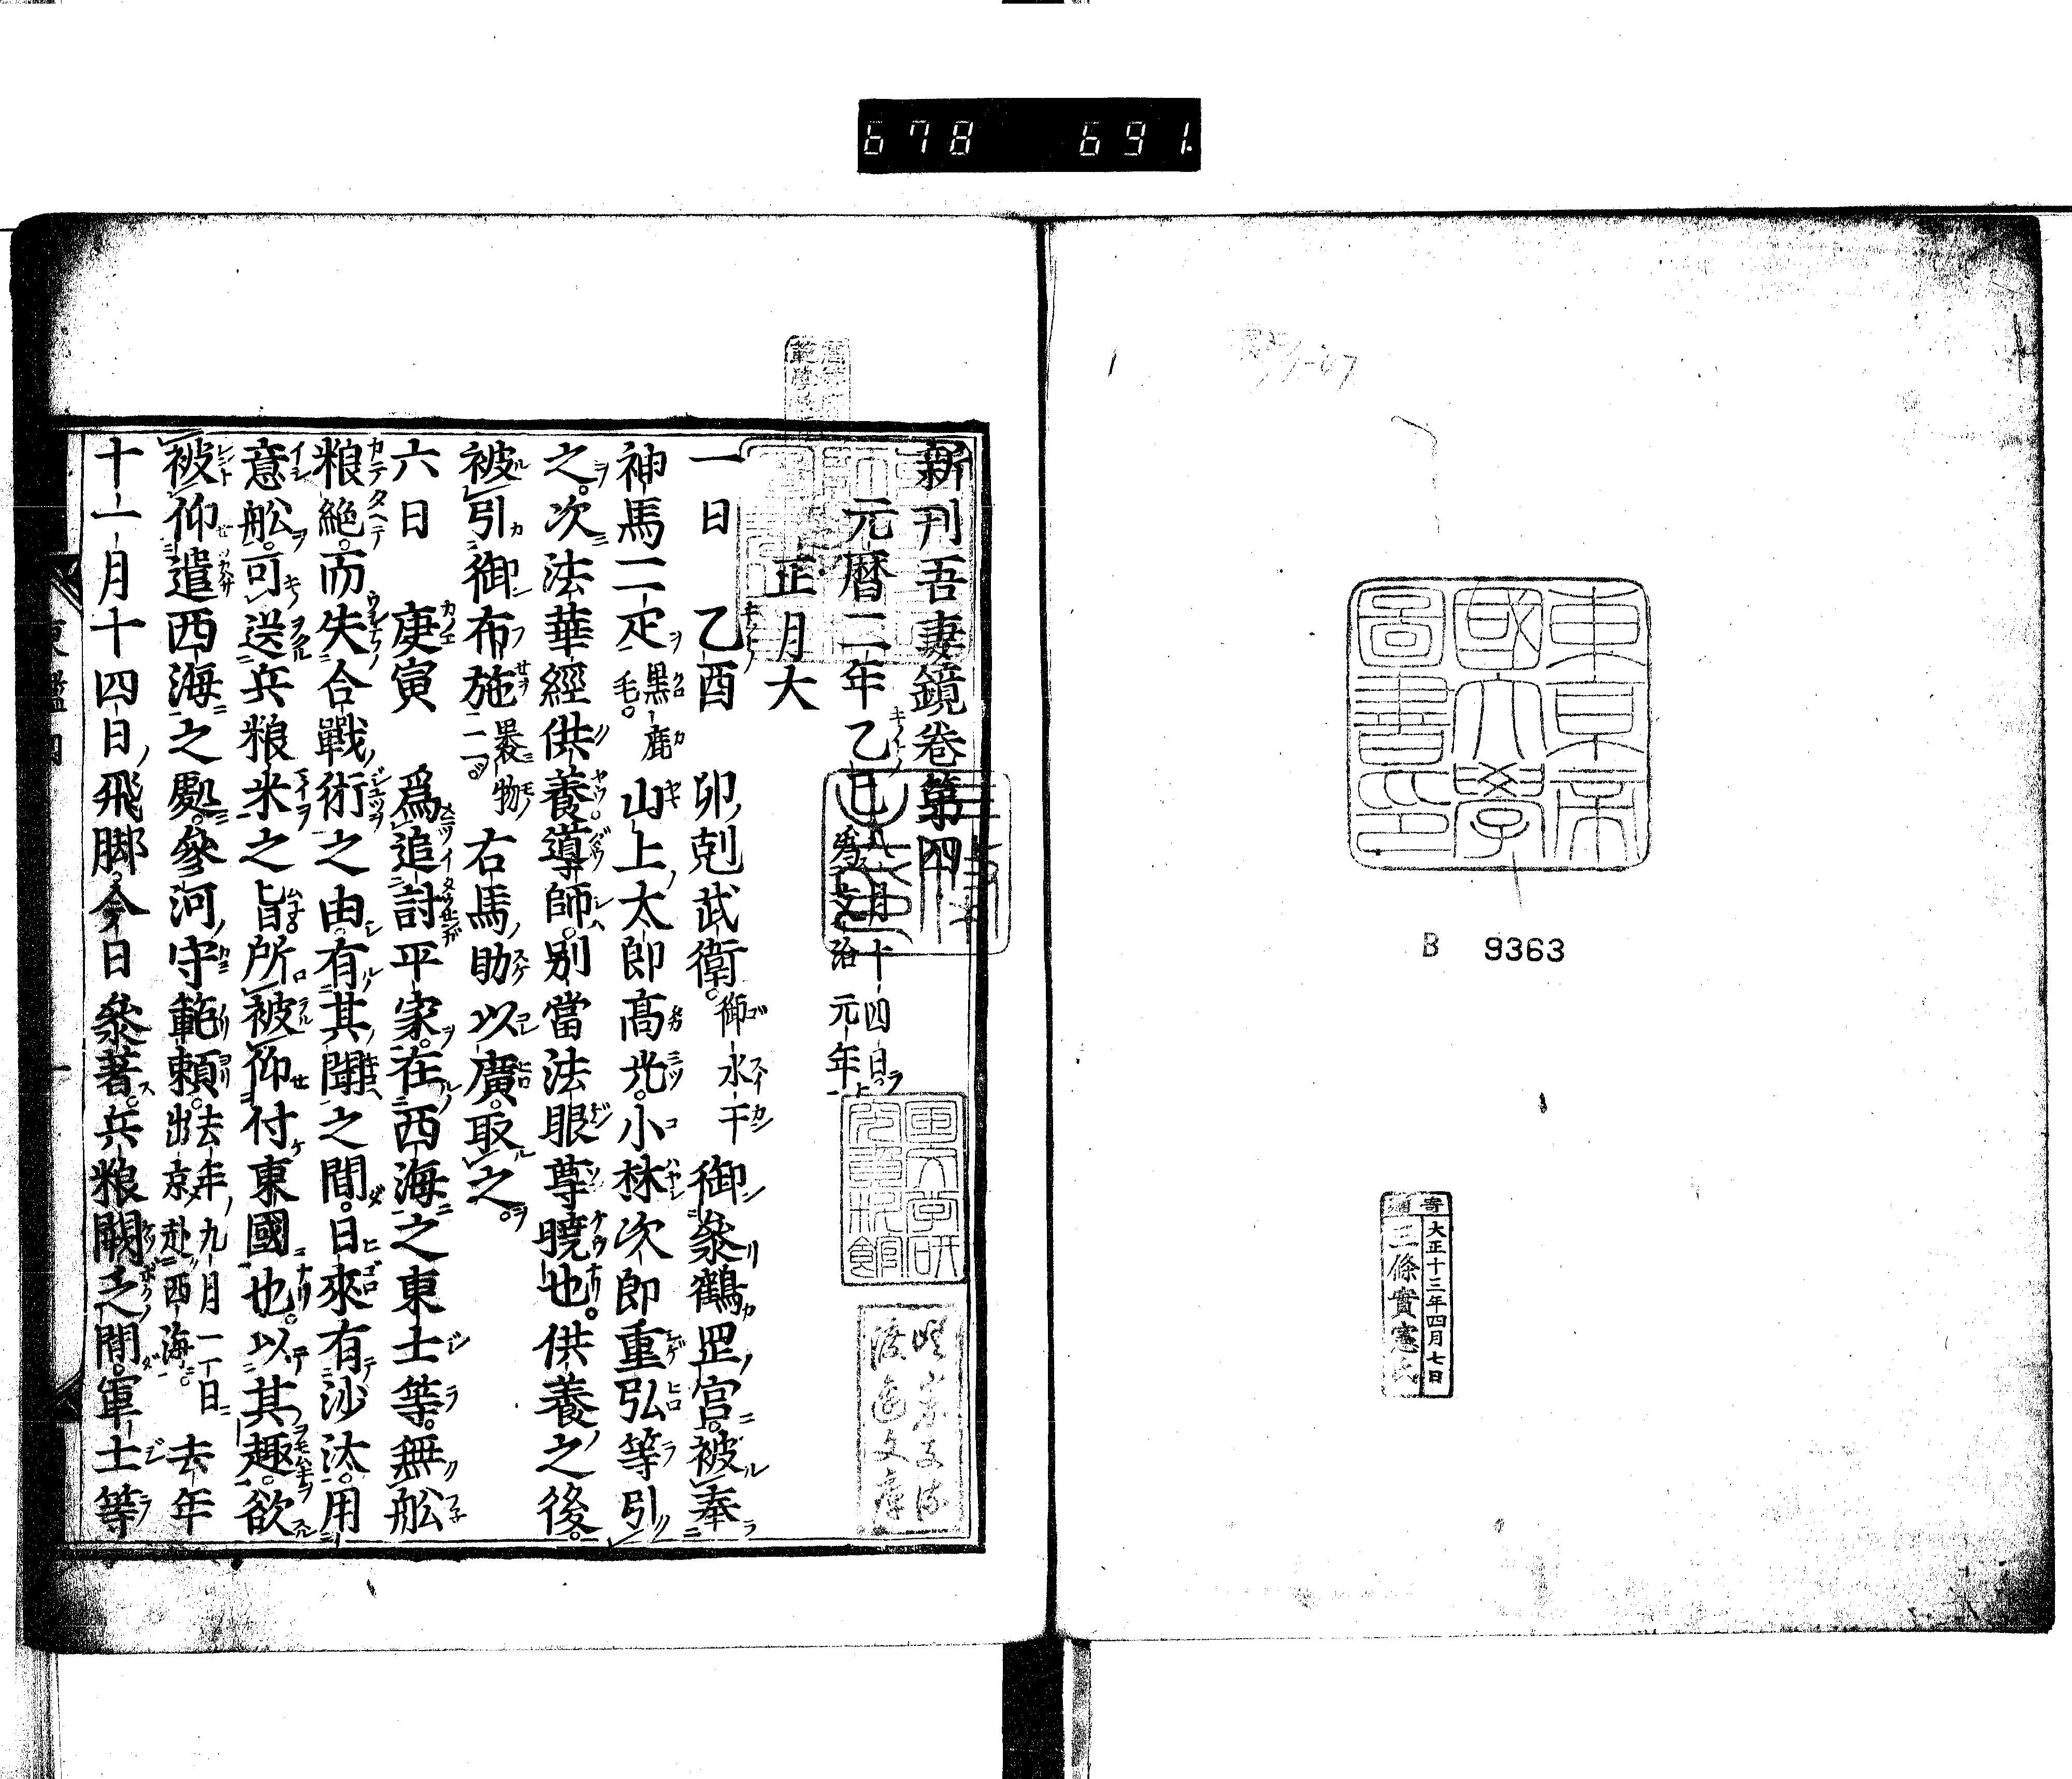 678 691.
東京帝
國大學
圖書印
B 9363
寄贈
大正十三年四月七日
三條實憲氏
新刊吾妻鏡卷第四
元暦二年乙巳八月十四日爲文治元年
正月大
一日 乙酉 卯剋武衛御水干御參鶴罡宮被奉
神馬二疋黒鹿毛山上太郎高光小林次郎重弘等引
之次法華經供養導師別當法眼尊曉也供養之後
被引御布施裹物二右馬助以廣取之
六日 庚寅 爲追討平家在西海之東士等無舩
粮絶而失合戰術之由有其聞之間日來有沙汰用
意舩可送兵粮米之旨所被仰付東國也以其趣欲
被仰遣西海之處參河守範頼去年九月二日出京赴西海去年
十一月十四日飛脚今日參著兵粮闕乏間軍士等